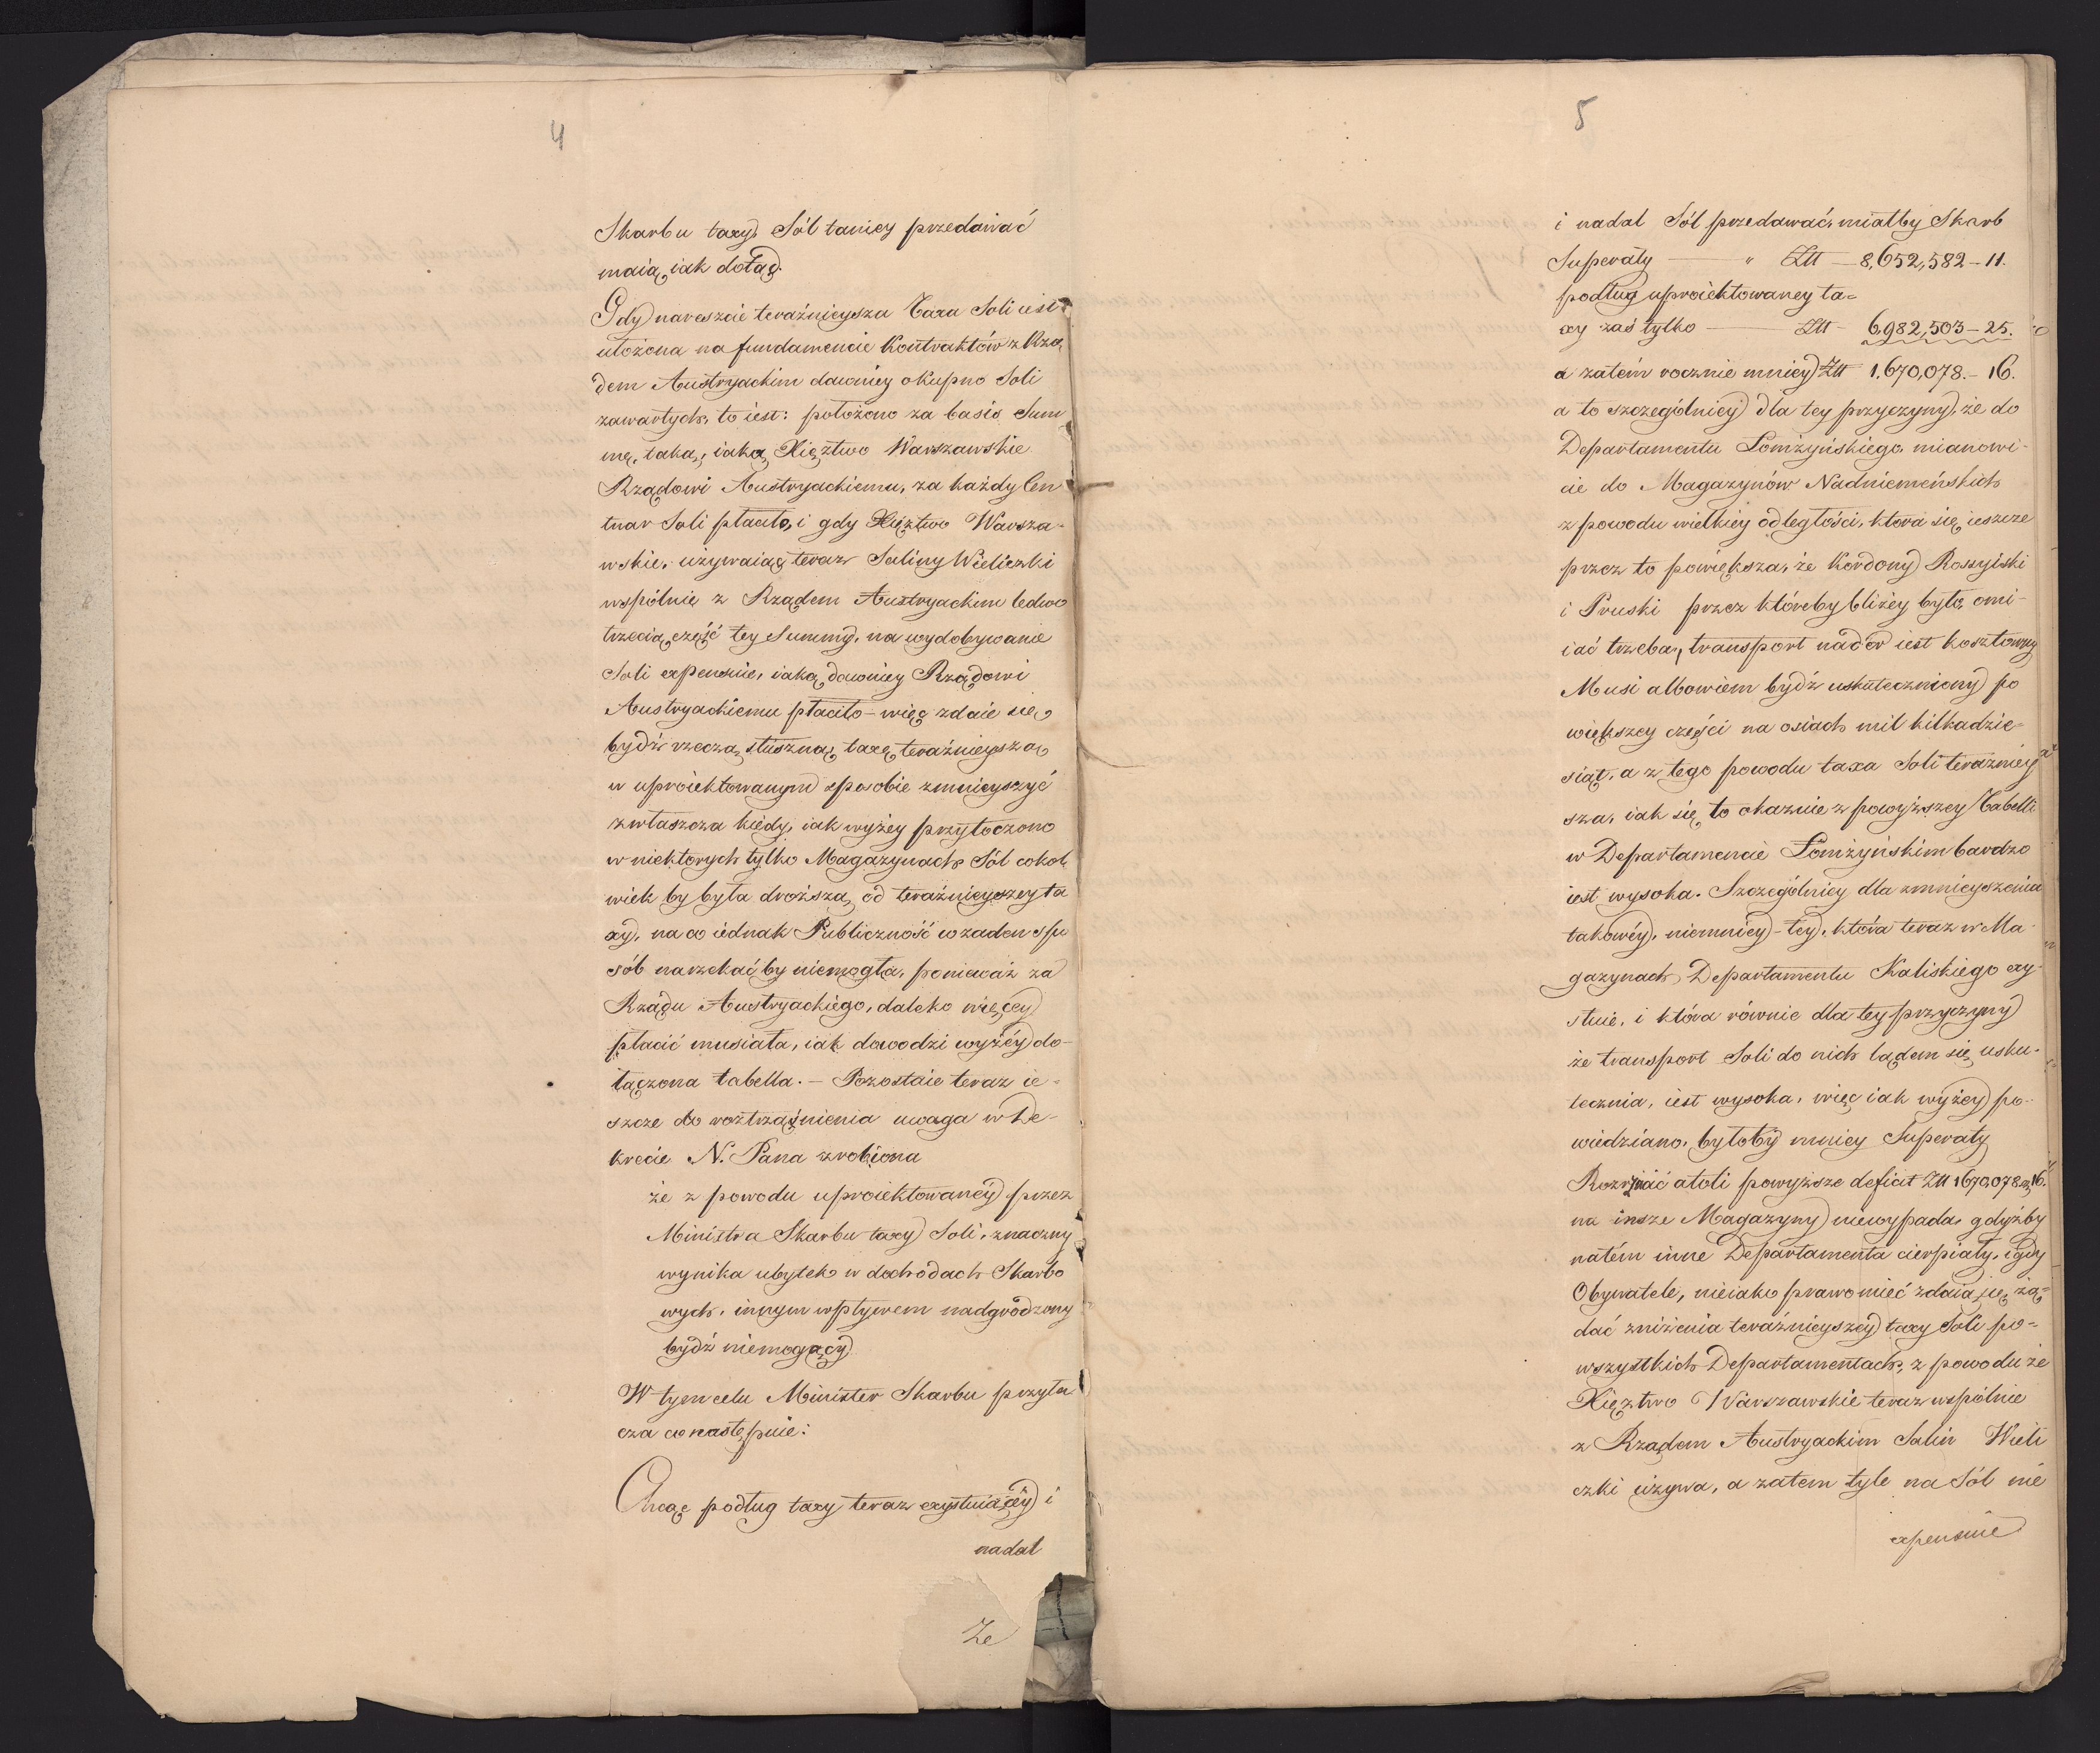 4
Skarbu taxy, Sól taniey przedawać
maią, iak dotąd.
Gdy nareszcie teraźnieysza Taxa Soli iest
ułożona na fundamencie Kontraktów z Rzą
dem Austryackim dawniey o kupno Soli
zawartych, to iest: położono za basis Sum
mę, taką, iaką Xięztwo Warszawskie
Rządowi Austryackiemu, za każdy Cen
tnar Soli płaciło, i gdy Xięztwo Warsza-
wskie, używaiąc teraz Saliny Wieliczki
wspólnie z Rządem Austryackim ledwo
trzecią część tey Summy, na wydobywanie
Soli expensuie, iaką dawniey Rządowi
Austryackiemu płaciło – więc zdaie się,
bydź rzeczą słuszną, taxę teraźnieyszą,
w uproiektowanym sposobie zmnieyszyć
zwłaszcza kiedy, iak wyżey przytoczono
w niektorych tylko Magazynach Sól cokol
wiek by była droższą od teraźnieyszey ta
xy, na co iednak Publiczność w żaden spo
sób narzekać by niemogła, ponieważ za
Rządu Austryackiego, daleko więcey
płacić musiała, iak dowodzi wyżéy do-
łączona tabella. – Pozostaie teraz ie-
szcze do roztrząśnienia uwaga w De-
krecie N. Pana zrobiona
że z powodu uproiektowanéy przez
Ministra Skarbu taxy Soli, znaczny
wynika ubytek w dochodach Skarbo
wych, innym wpływem nadgrodzony
bydź niemogący
W tym celu Minister Skarbu przyta
cza co następuie:
Chcąc podług taxy teraz exystuiącéy i
nadal
Ze
5
i nadal Sól przedawać, miałby Skarb
Superaty — " Złł — 8,652,582 – 11.
podług uproiektowaney ta=
xy zaś tylko — Złł – 6,982,503 – 25.
a zatém rocznie mniey Złł 1,670,078. – 16.
a to szczególniey dla tey przyczyny, że do
Departamentu Łomżyńskiego mianowi-
cie do Magazynów Nadniemeńskich
z powodu wielkiey odległości, ktora się ieszcze
przez to powiększa, że Kordony Rossyiski
i Pruski przez któreby bliżey było, omi-
iać trzeba, transport nader iest kosztowny
Musi albowiem bydź uskuteczniony po
większey części na osiach mil kilkadzie-
siąt, a z tego powodu taxa Soli teraźniey
sza, iak się to okazuie z powyższey Tabelli
w Departamencie Łomżyńskim bardzo
iest wysoka. Szczególniey dla zmnieyszenia
takowéy, niemniey – tey, która teraz w Ma-
gazynach Departamentu Kaliskiego exy-
stuie, i która równie dla tey przyczyny
że transport Soli do nich lądem się usku-
tecznia, iest wysoka, więc iak wyżey po-
wiedziano, byłoby mniey Superaty
Rozrzucić atoli powyższe deficit Złł 1670,078. 16.
na insze Magazyny niewypada, gdyżby
natém inne Departamenta cierpiały, i gdy
Obywatele, nieiako prawo mieć zdaią się żą-
dać zniżenia teraźnieyszéy taxy Soli po=
wszystkich Departamentach, z powodu że
Xięztwo Warszawskie teraz wspólnie
z Rządem Austryackim Salin Wieli
czki używa, a zatem tyle na Sól nie
expensuie